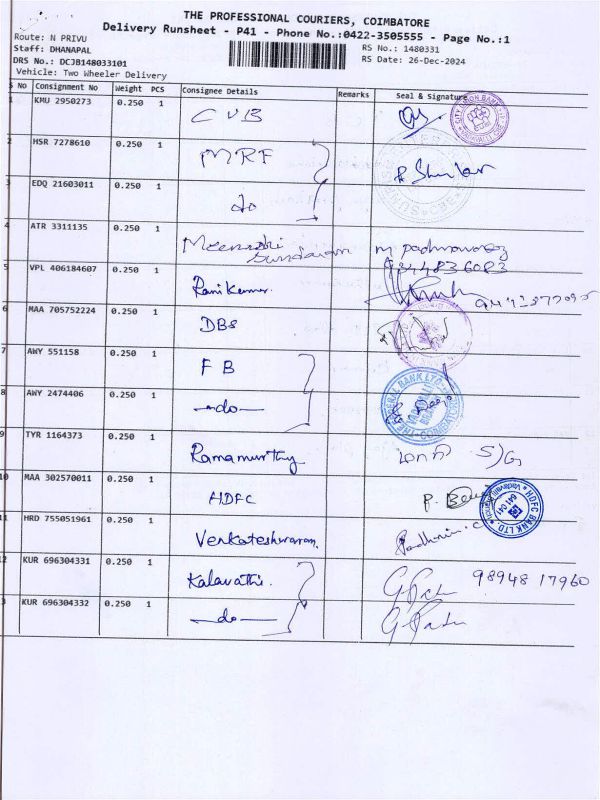 THE PROFESSIONAL COURIERS, COIMBATORE
Delivery Runsheet - P41 - Phone No.:0422-3505555 - Page No.:1
Route: N PRIVU
RS No.: 1480331
Staff: DHANAPAL
RS Date: 26-Dec-2024
DRS No.: DCJB148033101
Vehicle: Two Wheeler Delivery
S No Consignment No Weight PCS Consignee Details Remarks Seal & Signature
1 KMU 2950273 0.250 1 CUB
HSR 7278610 0.250 1 MRF
3 EDQ 21603011 0.250 1 do
4 ATR 3311135 0.250 1 Meenakshi Sundaram
5 VPL 406184607 0.250 1 Ranikumar
6 MAA 705752224 0.250 1 DBS
7 AWY 551158 0.250 1 FB
8 AWY 2474406 0.250 1 -do-
9 TYR 1164373 0.250 1 Ramamurthy S/G
10 MAA 302570011 0.250 1 HDFC
HDFC BANK LTD
11 HRD 755051961 0.250 1 Venkateshwaran Padhmini
12 KUR 696304331 0.250 1 Kalavathi 98948 17960
3 KUR 696304332 0.250 1 -do-